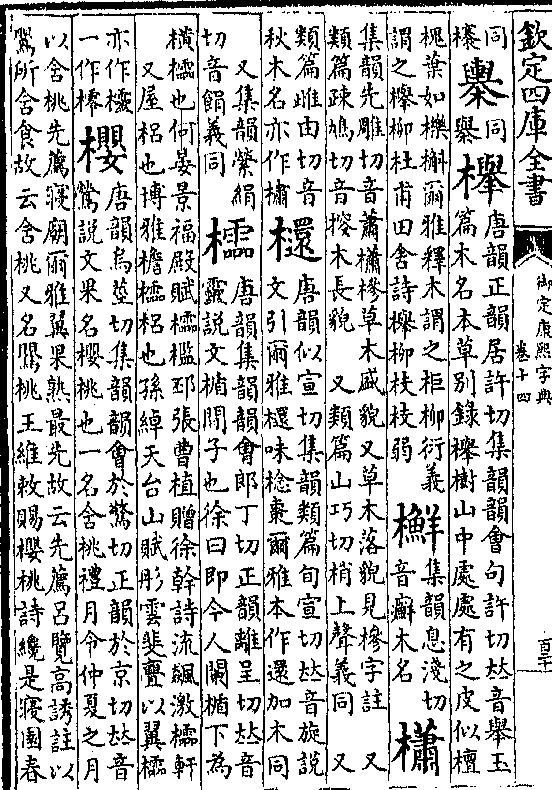 欽定四庫全書
御定康熙字典
卷十四
同
櫸
同
舉
櫸
唐韻正韻居許切集韻韻會句許切𠀤音舉玉
篇木名本草别錄櫸樹山中處處有之皮似檀
槐葉如櫟槲爾雅釋木謂之柜柳衍義
謂之櫸柳杜甫田舍詩櫸柳枝枝弱
⿰木鮮
集韻息淺切
音廯木名
櫹
集韻先雕切音蕭櫹槮草木盛貌又草木落貌見槮字註 又
類篇疎鳩切音搜木長貌 又類篇山巧切梢上聲義同 又
類篇雌由切音
秋木名亦作橚
⿰木還
唐韻似宣切集韻類篇旬宣切𠀤音旋說
文引爾雅⿰木還味棯棗爾雅本作還加木同
又集韻縈絹
切音餶義同
櫺
唐韻集韻韻會郎丁切正韻離呈切𠀤音
靈說文楯間子也徐曰即今人闌楯下為
橫櫺也何晏景福殿賦櫺檻邳張曹植贈徐幹詩流飆激櫺軒
又屋梠也博雅檐櫺梠也孫綽天台山賦彤雲斐亹以翼櫺
亦作欞
一作㯪
櫻
唐韻烏莖切集韻韻會於驚切正韻於京切𠀤音
鶯說文果名櫻桃也一名含桃禮月令仲夏之月
以含桃先薦寢廟爾雅翼果熟最先故云先薦呂覽高誘註以
鶯所含食故云含桃又名鶯桃王維敕賜櫻桃詩纔是寢園春